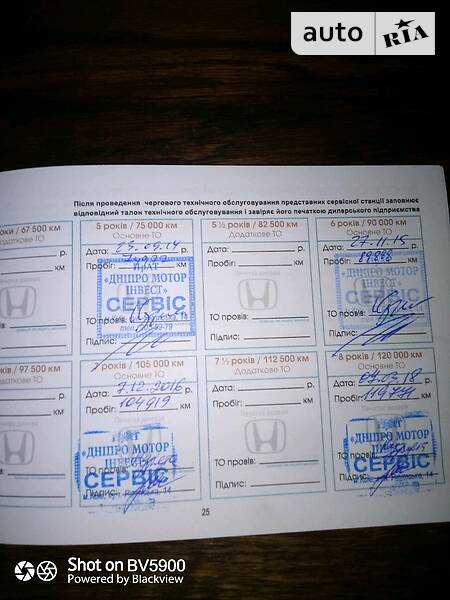 auto RIA
Після проведення чергового технічного обслуговування представник сервісної станції заповнює
відповідний талон технічного обслуговування і завіряє його печаткою дилерського підприємства
роки / 67 500 км
Додаткове ТО
р.
км
5 років / 75 000 км
Основне ТО
Дата: 23.09.14 р.
Пробіг: км
ПІАТ
«ДНІПРО МОТОР
ІНВЕСТ»
СЕРВІС
ТО провів:
Підпис:
5 ½ років / 82 500 км
Додаткове ТО
Дата: р.
Пробіг: км
ТО провів:
Підпис:
6 років / 90 000 км
Основне ТО
Дата: 27.11.15 р.
Пробіг: км
«ДНІПРО МОТОР
ІНВЕСТ»
СЕРВІС
ТО провів:
Підпис:
/ 97 500 км
Додаткове ТО
р.
км
років / 105 000 км
Основне ТО
Дата: 7.12.2016 р.
Пробіг: 104919 км
«ДНІПРО МОТОР
ІНВЕСТ»
СЕРВІС
ТО провів:
Підпис:
7 ½ років / 112 500 км
Додаткове ТО
Дата: р.
Пробіг: км
ТО провів:
Підпис:
8 років / 120 000 км
Основне ТО
Дата: 07.03.18 р.
Пробіг: 119774 км
«ДНІПРО МОТОР
СЕРВІС
Підпис:
25
Shot on BV5900
Powered by Blackview